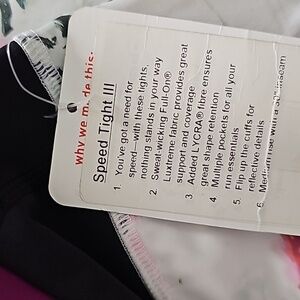 why we made this:
Speed Tight III
1. You've got a need for
speed—with these tights,
nothing stands in your way
2. Sweat-wicking Full-On®
Luxtreme fabric provides great
support and coverage
3 Added LYCRA® fibre ensures
great shape retention
4 Multiple pockets for all your
run essentials
5. Flip up the cuffs for
reflective details
6 Medium rise with a